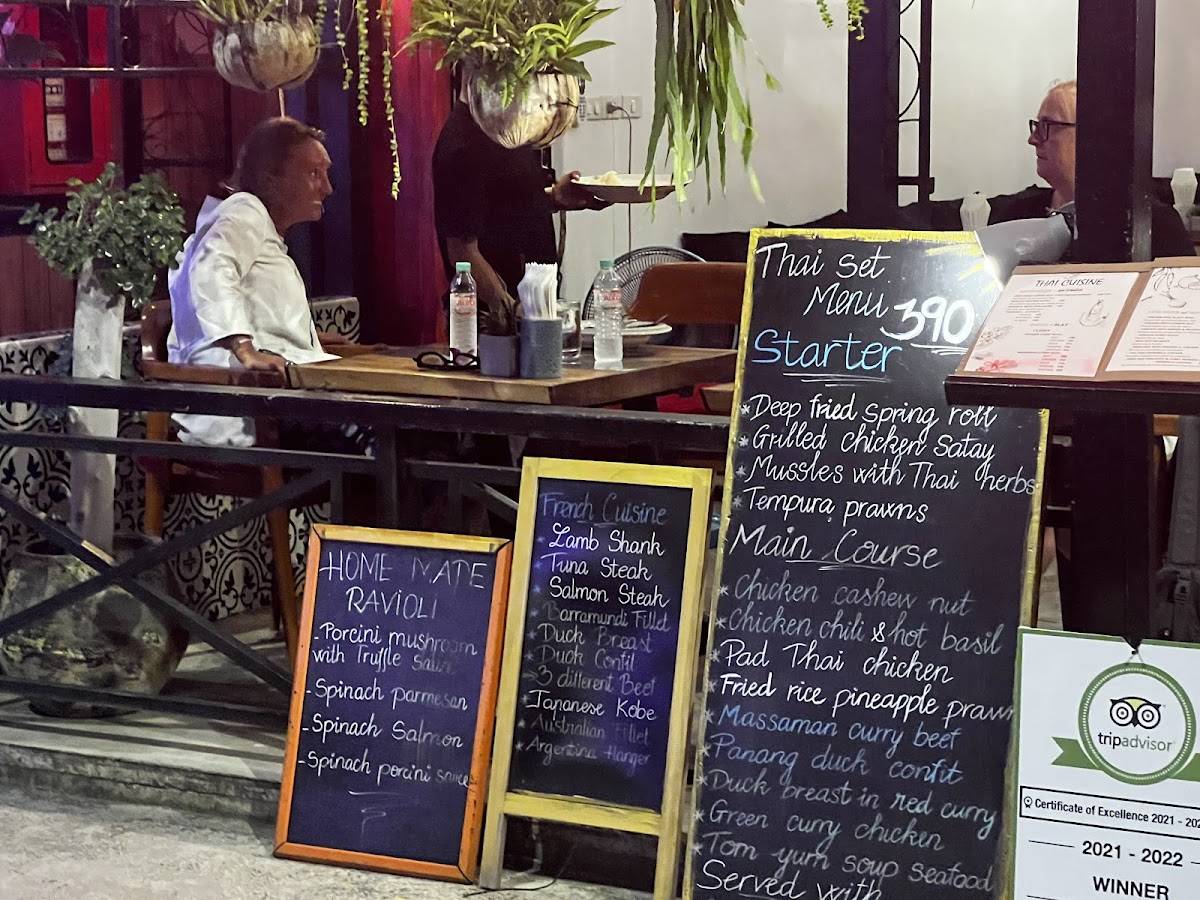 HOME MADE
RAVIOLI
- Porcini mushroom
with Truffle Sauce
- Spinach parmesan
- Spinach Salmon
- Spinach porcini sauce
French Cuisine
* Lamb Shank
* Tuna Steak
* Salmon Steak
* Barramundi Fillet
* Duck Breast
* Duck Confil
* 3 different Beef
* Japanese Kobe
* Australian Fillet
* Argentina Hanger
Thai Set
Menu 390
Starter
* Deep fried spring roll
* Grilled chicken Satay
* Mussles with Thai herbs
* Tempura prawns
Main Course
* Chicken cashew nut
* Chicken chili & hot basil
* Pad Thai chicken
* Fried rice pineapple prawn
* Massaman curry beef
* Panang duck confit
* Duck breast in red curry
* Green curry chicken
* Tom yum soup seafood
Served with
THAI CUISINE
tripadvisor
Certificate of Excellence 2021 - 202
2021 - 2022
WINNER